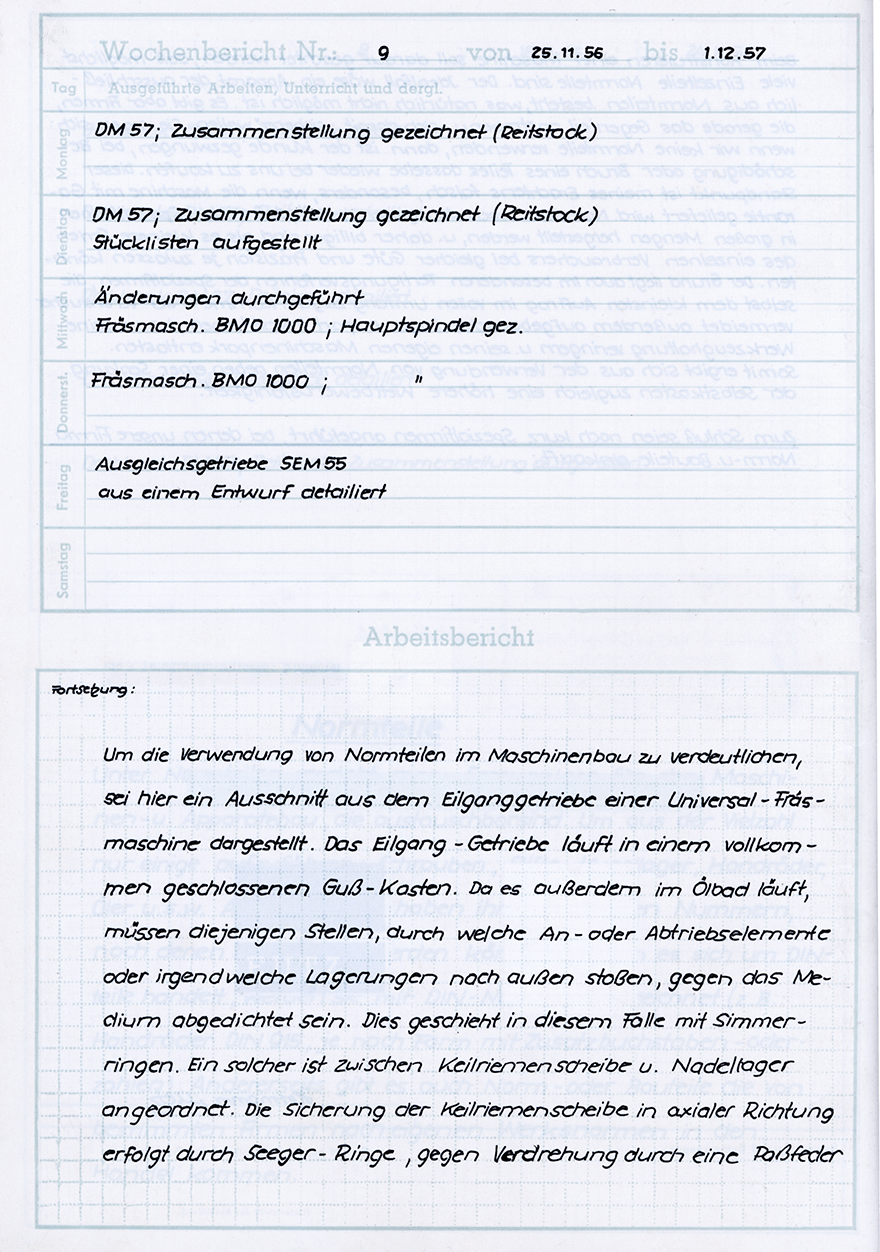 Wochenbericht Nr.: 9 von 25.11.56 bis 1.12.57
Tag Ausgeführte Arbeiten, Unterricht und dergl.
Montag
DM 57; Zusammenstellung gezeichnet (Reitstock)
Dienstag
DM 57; Zusammenstellung gezeichnet (Reitstock)
Stücklisten aufgestellt
Mittwoch
Änderungen durchgeführt
Fräsmasch. BMO 1000 ; Hauptspindel gez.
Donnerst.
Fräsmasch. BMO 1000 ; "
Freitag
Ausgleichsgetriebe SEM 55
aus einem Entwurf detailiert
Samstag
Arbeitsbericht
Fortsetzung:
Um die Verwendung von Normteilen im Maschinenbau zu verdeutlichen,
sei hier ein Ausschnitt aus dem Eilganggetriebe einer Universal-Fräs-
maschine dargestellt. Das Eilgang-Getriebe läuft in einem vollkom-
men geschlossenen Guß-Kasten. Da es außerdem im Ölbad läuft,
müssen diejenigen Stellen, durch welche An- oder Abtriebselemente
oder irgendwelche Lagerungen nach außen stoßen, gegen das Me-
dium abgedichtet sein. Dies geschieht in diesem Falle mit Simmer-
ringen. Ein solcher ist zwischen Keilriemenscheibe u. Nadellager
angeordnet. Die Sicherung der Keilriemenscheibe in axialer Richtung
erfolgt durch Seeger-Ringe, gegen Verdrehung durch eine Paßfeder